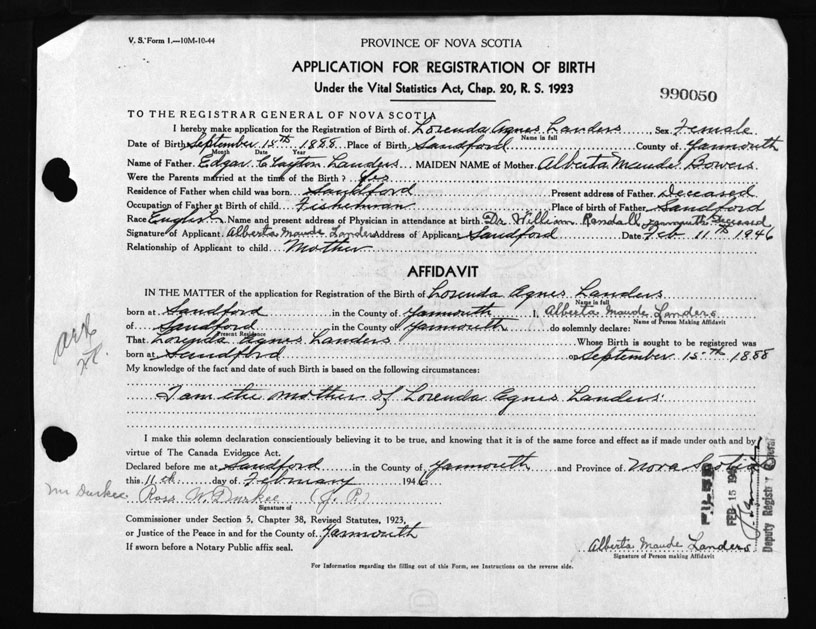 V. S. Form 1.—10M-10-44
PROVINCE OF NOVA SCOTIA
APPLICATION FOR REGISTRATION OF BIRTH
Under the Vital Statistics Act, Chap. 20, R. S. 1923
990050
TO THE REGISTRAR GENERAL OF NOVA SCOTIA
I hereby make application for the Registration of Birth of Lorenda Agnes Landers Sex Female
Name in full
Date of Birth September 15th 1888 Place of Birth Sandford County of Yarmouth
Month Date Year
Name of Father Edgar Clayton Landers MAIDEN NAME of Mother Alberta Maude Bowers
Were the Parents married at the time of the Birth? Yes
Residence of Father when child was born Sandford Present address of Father Deceased
Occupation of Father at Birth of child Fisherman Place of birth of Father Sandford
Race English Name and present address of Physician in attendance at birth Dr. William Randall Yarmouth Deceased
Signature of Applicant Alberta Maude Landers Address of Applicant Sandford Date Feb 11th 1946
Relationship of Applicant to child Mother
AFFIDAVIT
IN THE MATTER of the application for Registration of the Birth of Lorenda Agnes Landers
Name in full
born at Sandford in the County of Yarmouth I, Alberta Maude Landers
Name of Person Making Affidavit
of Sandford in the County of Yarmouth do solemnly declare:
Present Residence
That Lorenda Agnes Landers Whose Birth is sought to be registered was
born at Sandford on September 15th 1888
My knowledge of the fact and date of such Birth is based on the following circumstances:
I am the mother of Lorenda Agnes Landers.
I make this solemn declaration conscientiously believing it to be true, and knowing that it is of the same force and effect as if made under oath and by
virtue of The Canada Evidence Act.
Declared before me at Sandford in the County of Yarmouth and Province of Nova Scotia
this 11th day of February 1946
Mr Durkee Ross W. Durkee (J. P.)
Signature of
Commissioner under Section 5, Chapter 38, Revised Statutes, 1923,
or Justice of the Peace in and for the County of Yarmouth
If sworn before a Notary Public affix seal.
Alberta Maude Landers
Signature of Person making Affidavit
For Information regarding the filling out of this Form, see Instructions on the reverse side.
FILED
FEB 15 1946
Deputy Registrar General